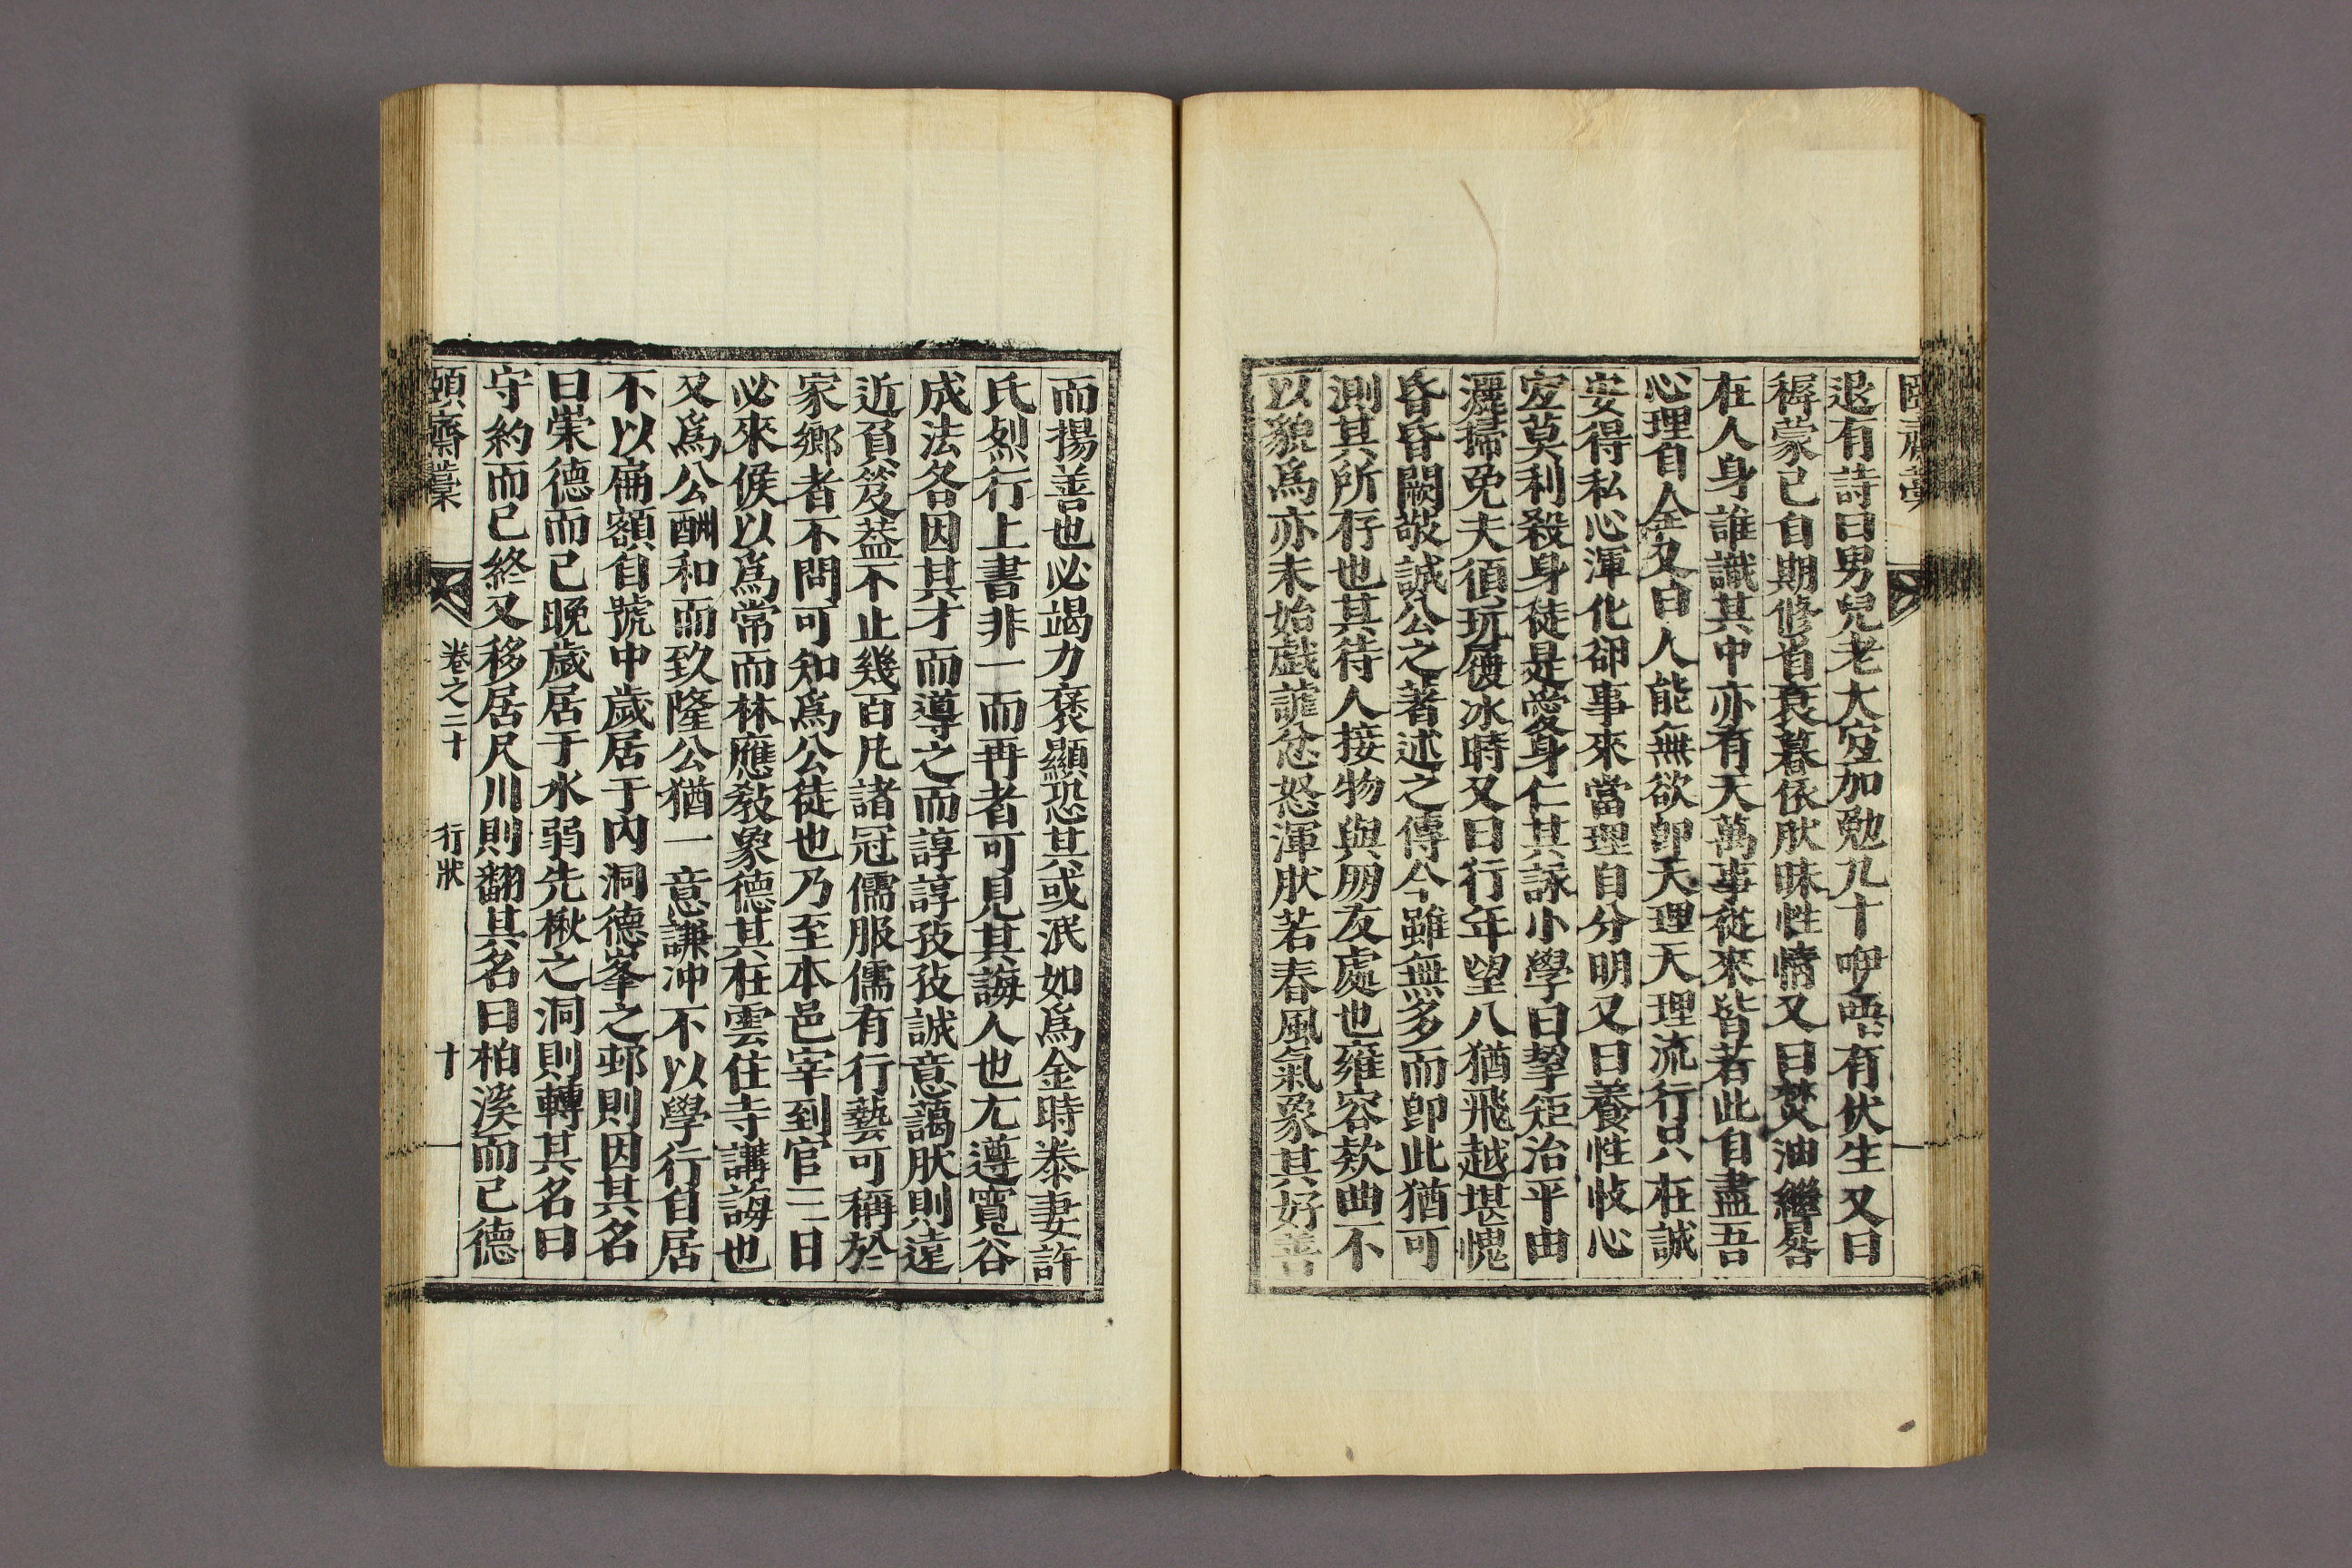 退有詩曰男兒老大宜加勉几十咿唔有伏生又曰
稺蒙已自期修省衰暮依肰昧性情又曰焚油繼晷
在人身誰識其中亦有天萬事從來皆若此自盡吾
心理自全又曰人能無欲卽天理天理流行只在誠
安得私心渾化卻事來當理自分明又曰養性收心
宜莫利殺身徒是愛身仁其詠小學曰挈矩治平由
灑掃免夫須玩履冰時又曰行年望八猶飛越堪愧
昏昏闕敬誠公之著述之傳今雖無多而卽此猶可
測其所存也其待人接物與朋友處也雍容欵曲不
以貌爲亦未始戲謔忿怒渾肰若春風氣象其好善
而揚善也必竭力褒顯恐其或泯如爲金時泰妻許
氏烈行上書非一而再者可見其誨人也尢遵寬谷
成法各因其才而導之而諄諄孜孜誠意藹肰則遠
近負笈葢不止幾百凡諸冠儒服儒有行藝可稱於
家鄉者不問可知爲公徒也乃至本邑宰到官三日
必來候以爲常而林應敎象德其在雲住寺講誨也
又爲公酬和而致隆公猶一意謙冲不以學行自居
不以扁額自號中歲居于內洞德峯之邨則因其名
曰崇德而已晚歲居于水弱先楸之洞則轉其名曰
守約而已終又移居尺川則翻其名曰柏溪而已德
頤齋藁 卷之二十 行狀 十